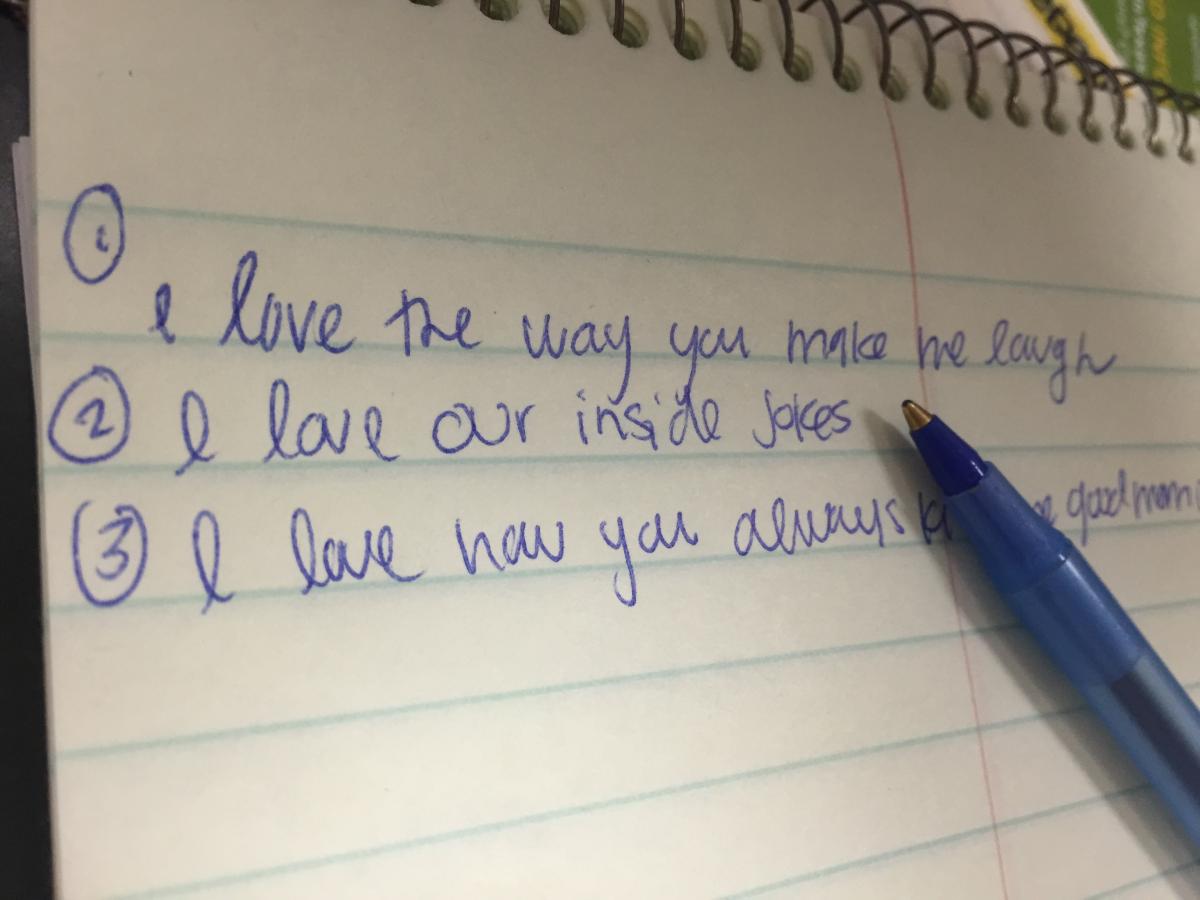 1
I love the way you make me laugh
2 I love our inside jokes
3 I love how you always good morni